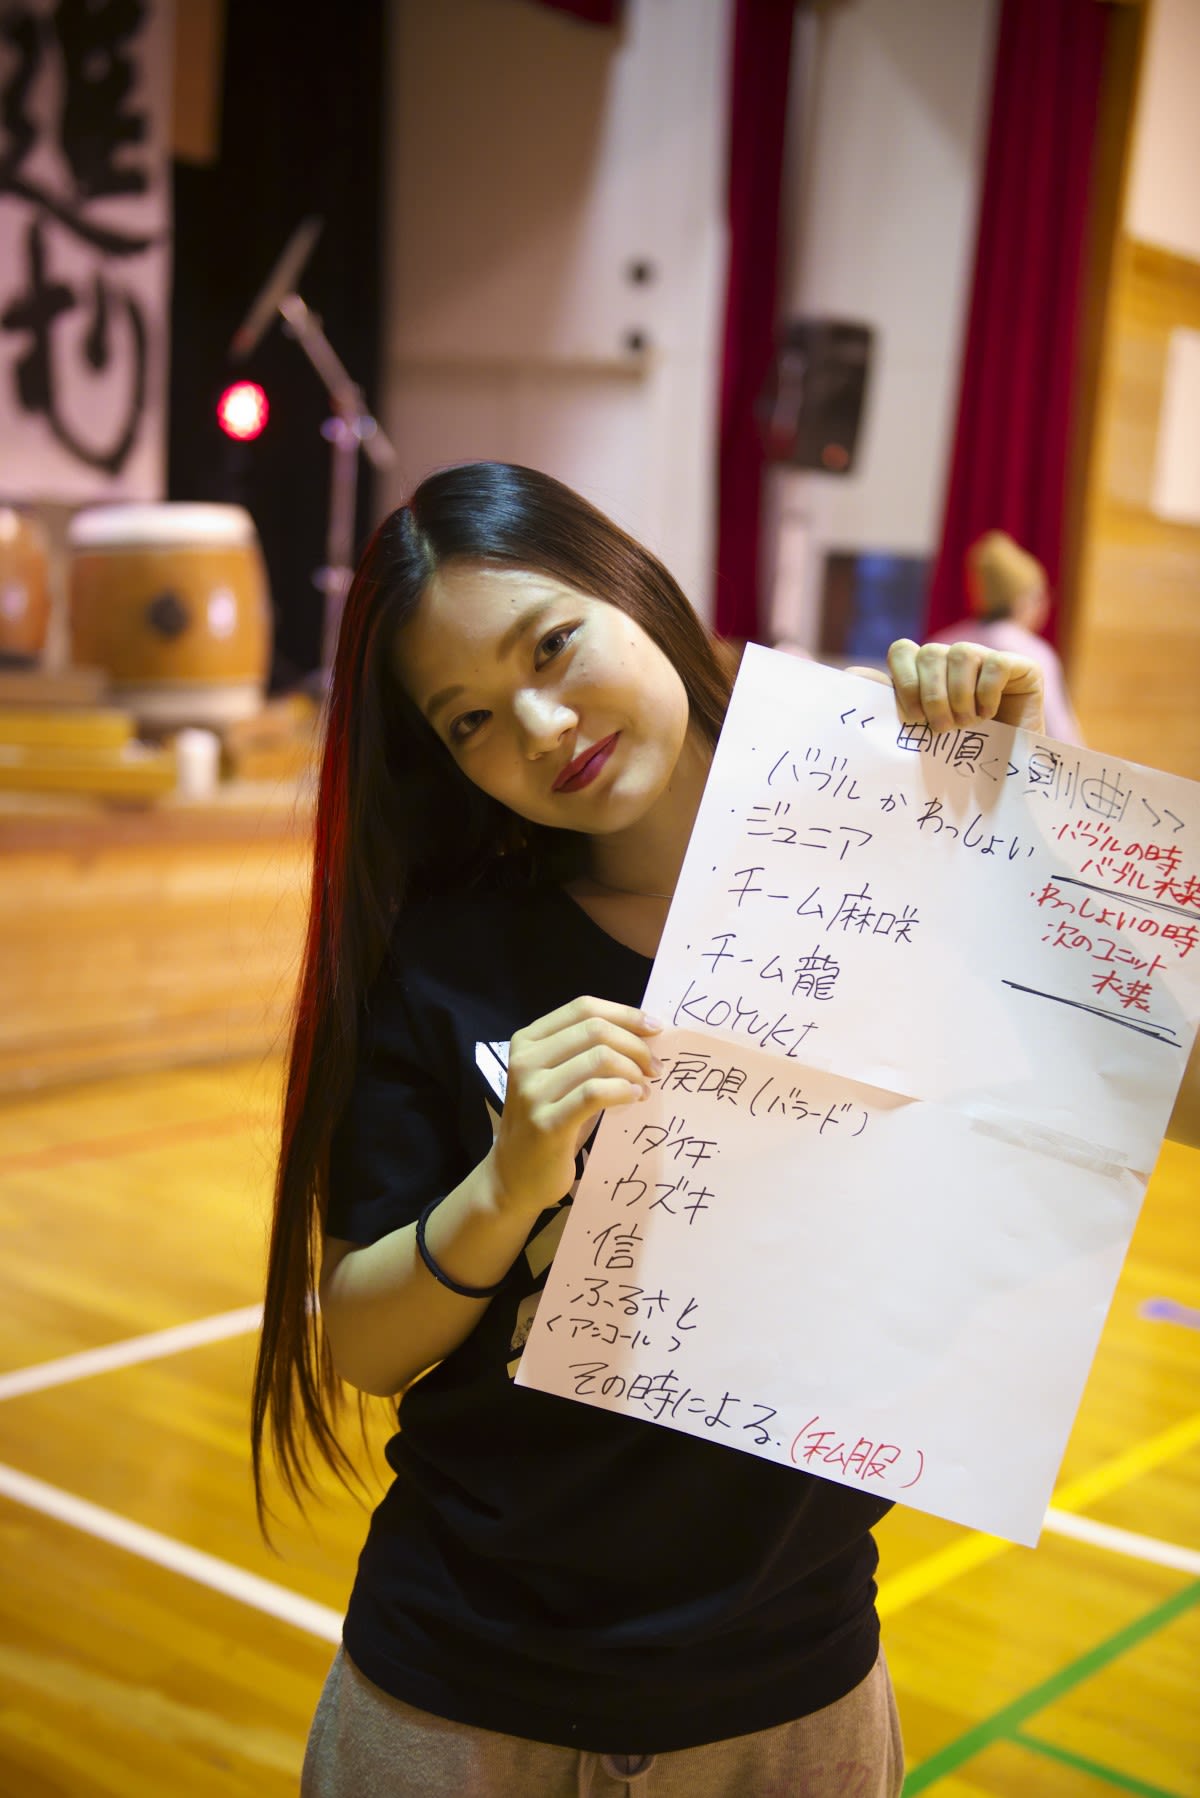 進
む
<< 曲順<>順曲 >>
・バブル か わっしょい
・ジュニア
・チーム麻咲
・チーム龍
・KOYUKI
・涙唄(バラード)
・ダイチ
・ウズキ
・信
・ふるさと
<アンコール>
その時による.(私服)
・バブルの時
バブル衣装
・わっしょいの時
次のユニット
衣装